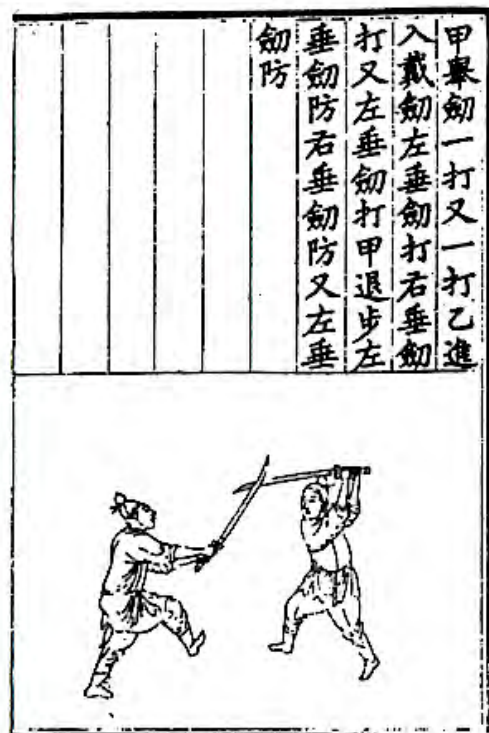 甲擧劒一打又一打乙進
入戴劒左垂劒打右垂劒
打又左垂劒打甲退步左
垂劒防右垂劒防又左垂
劒防